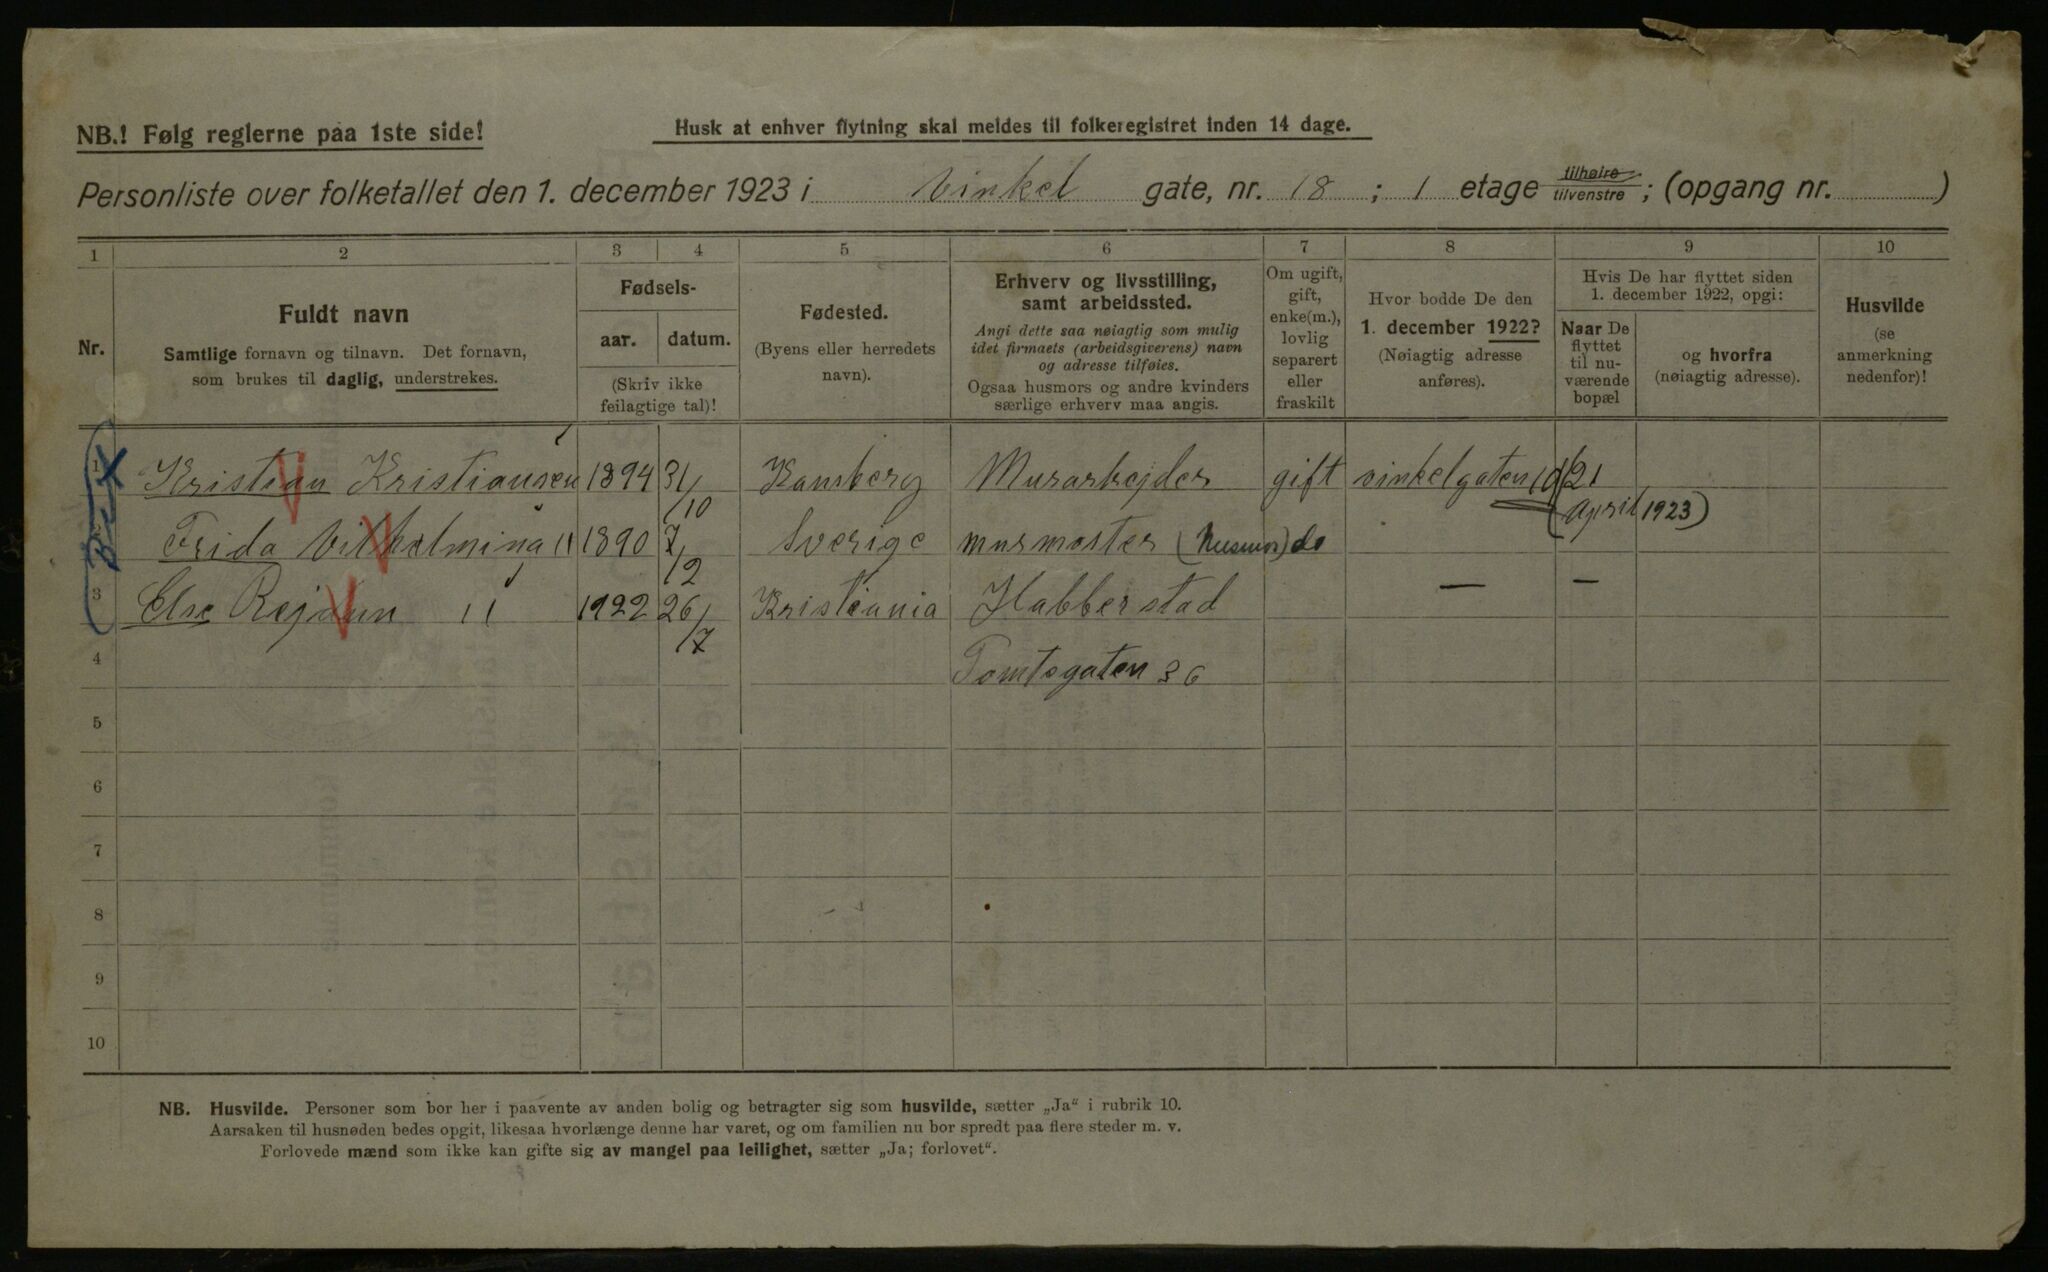 NB.! Følg reglerne paa 1ste side!
Husk at enhver flytning skal meldes til folkeregistret inden 14 dage.
Personliste over folketallet den 1. december 1923 i Vinkel gate, nr. 18 ; 1 etage tilhøire tilvenstre ; (opgang nr. )
1 2 3 4 5 6 7 8 9 10
Nr.
Fuldt navn
Samtlige fornavn og tilnavn. Det fornavn,
som brukes til daglig, understrekes.
Fødsels-
aar. datum.
(Skriv ikke
feilagtige tal)!
Fødested.
(Byens eller herredets
navn).
Erhverv og livsstilling,
samt arbeidssted.
Angi dette saa nøiagtig som mulig
idet firmaets (arbeidsgiverens) navn
og adresse tilføies.
Ogsaa husmors og andre kvinders
særlige erhverv maa angis.
Om ugift,
gift,
enke(m.),
lovlig
separert
eller
fraskilt
Hvor bodde De den
1. december 1922?
(Nøiagtig adresse
anføres).
Hvis De har flyttet siden
1. december 1922, opgi:
Naar De
flyttet
til nu-
værende
bopæl
og hvorfra
(nøiagtig adresse).
Husvilde
(se
anmerkning
nedenfor)!
1 Kristian Kristiansen 1894 31/10 Murarbejder gift vinkelgaten 10 21
April 1923)
Frida Vilhelmina 11 1890 7/2 Sverige murmoster (husmor) do
3 Else 11 1922 26/7 Kristiania Habberstad — —
4 Tomtegaten 36
5
6
7
8
9
10
NB. Husvilde. Personer som bor her i paavente av anden bolig og betragter sig som husvilde, sætter „Ja“ i rubrik 10.
Aarsaken til husnøden bedes opgit, likesaa hvorlænge denne har varet, og om familien nu bor spredt paa flere steder m. v.
Forlovede mænd som ikke kan gifte sig av mangel paa leilighet, sætter „Ja; forlovet“.